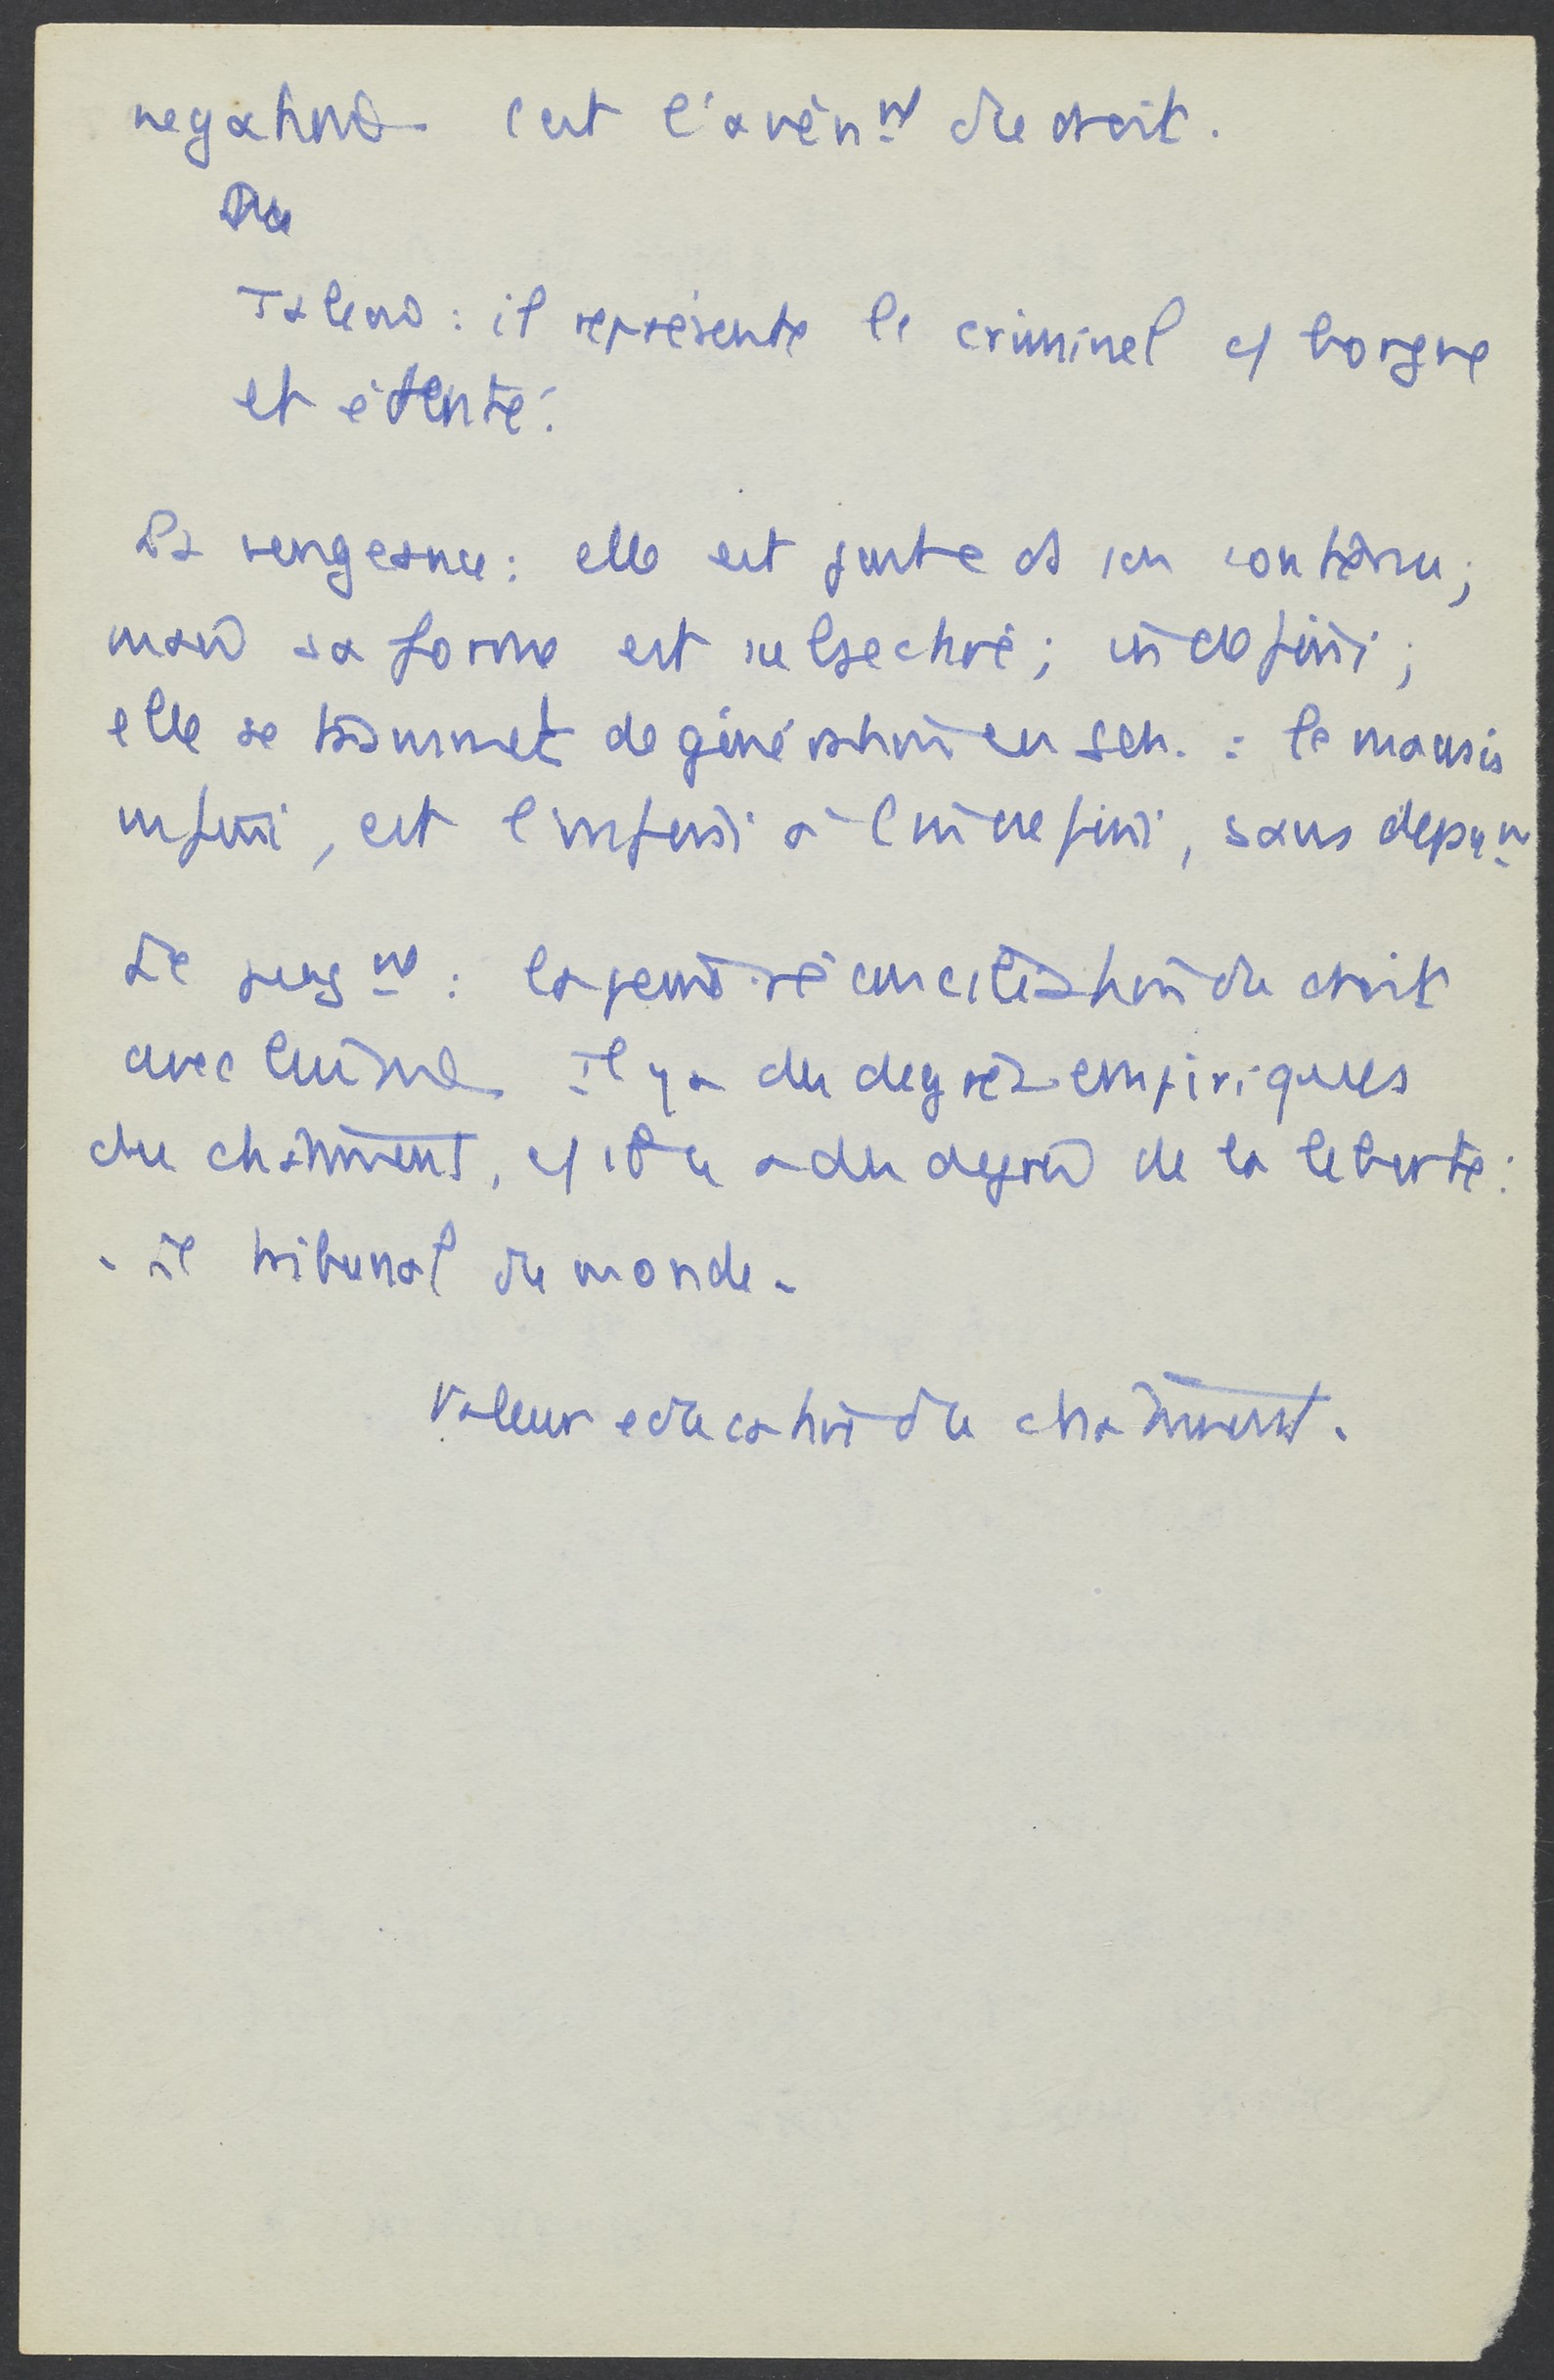 negation. C'est l'avènt du droit.
Du
Talion : il représente le criminel c/ borgne
et édenté.
La vengeance : elle est juste ds son contenu ;
mais sa forme est subjective ; indéfini ;
elle se transmet de génération en gen. : le mauvais
infini, est l'infini à l'indéfini, sans depasst
Le jugt : la peine réconciliation du droit
avec lui-même. Il y a des degrés empiriques
du châtiment, c/ il y a des degrés de la liberté :
. le tribunal du monde.
Valeur education du châtiment.